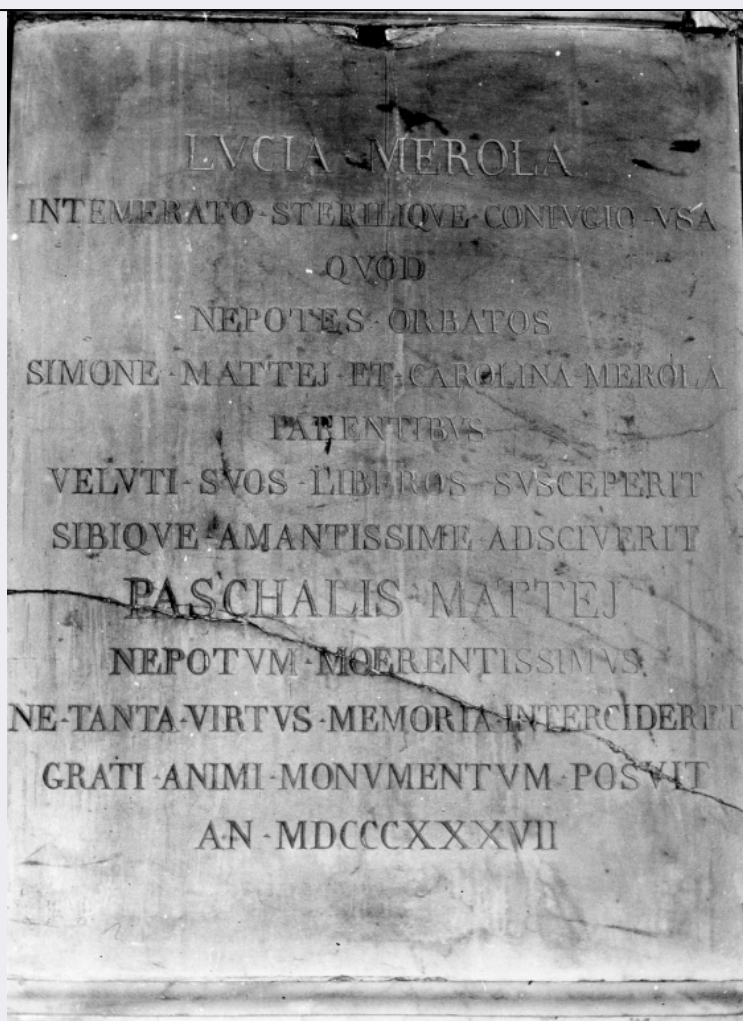 LVCIA · MEROLA
INTEMERATO · STERILIQVE · CONIVGIO · VSA
QVOD
NEPOTES · ORBATOS
SIMONE · MATTEJ · ET · CAROLINA · MEROLA
PARENTIBVS
VELVTI · SVOS · LIBEROS · SVSCEPERIT
SIBIQVE · AMANTISSIME · ADSCIVERIT
PASCHALIS · MATTEJ
NEPOTVM · MOERENTISSIMVS
NE · TANTA · VIRTVS · MEMORIA · INTERCIDERET
GRATI · ANIMI · MONVMENTVM · POSVIT
AN · MDCCCXXXVII